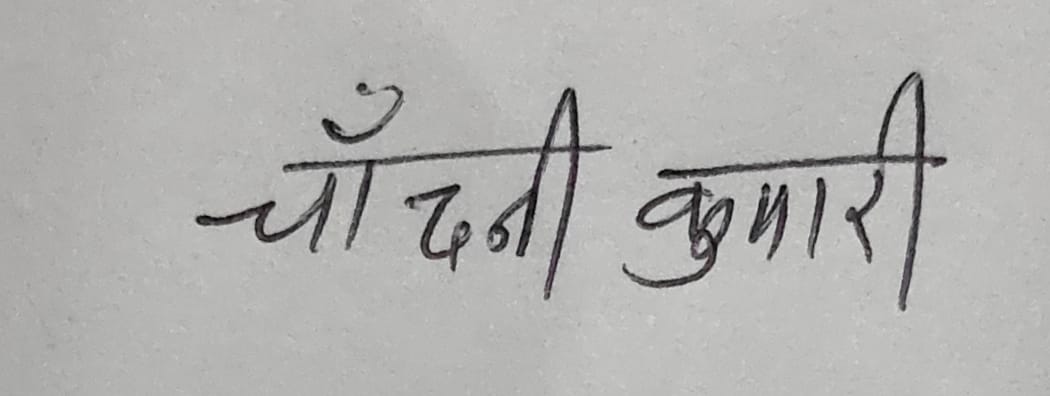 चाँदनी कुमारी